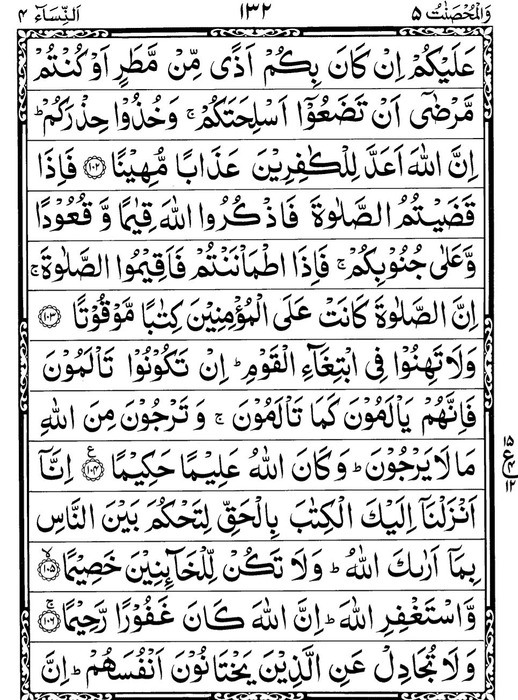 وَالْمُحْصَنٰتُ ۵ ۱۳۲ اَلنِّسَآء ۴
عَلَيْكُمْ اِنْ كَانَ بِكُمْ اَذًى مِّنْ مَّطَرٍ اَوْ كُنْتُمْ
مَّرْضٰٓى اَنْ تَضَعُوْٓا اَسْلِحَتَكُمْ ۚ وَخُذُوْا حِذْرَكُمْ ؕ
اِنَّ اللّٰهَ اَعَدَّ لِلْكٰفِرِيْنَ عَذَابًا مُّهِيْنًا ﴿۱۰۲﴾ فَاِذَا
قَضَيْتُمُ الصَّلٰوةَ فَاذْكُرُوا اللّٰهَ قِيٰمًا وَّ قُعُوْدًا
وَّعَلٰى جُنُوْبِكُمْ ۚ فَاِذَا اطْمَاْنَنْتُمْ فَاَقِيْمُوا الصَّلٰوةَ ۚ
اِنَّ الصَّلٰوةَ كَانَتْ عَلَى الْمُؤْمِنِيْنَ كِتٰبًا مَّوْقُوْتًا ﴿۱۰۳﴾
وَلَا تَهِنُوْا فِى ابْتِغَآءِ الْقَوْمِ ؕ اِنْ تَكُوْنُوْا تَاْلَمُوْنَ
فَاِنَّهُمْ يَاْلَمُوْنَ كَمَا تَاْلَمُوْنَ ۚ وَ تَرْجُوْنَ مِنَ اللّٰهِ
مَا لَا يَرْجُوْنَ ؕ وَ كَانَ اللّٰهُ عَلِيْمًا حَكِيْمًا ﴿۱۰۴﴾ ع اِنَّآ
۱۵ ع ۴ ۱۲
اَنْزَلْنَآ اِلَيْكَ الْكِتٰبَ بِالْحَقِّ لِتَحْكُمَ بَيْنَ النَّاسِ
بِمَآ اَرٰىكَ اللّٰهُ ؕ وَلَا تَكُنْ لِّلْخَآئِنِيْنَ خَصِيْمًا ﴿۱۰۵﴾ ۙ
وَّاسْتَغْفِرِ اللّٰهَ ؕ اِنَّ اللّٰهَ كَانَ غَفُوْرًا رَّحِيْمًا ﴿۱۰۶﴾ ۚ
وَلَا تُجَادِلْ عَنِ الَّذِيْنَ يَخْتَانُوْنَ اَنْفُسَهُمْ ؕ اِنَّ